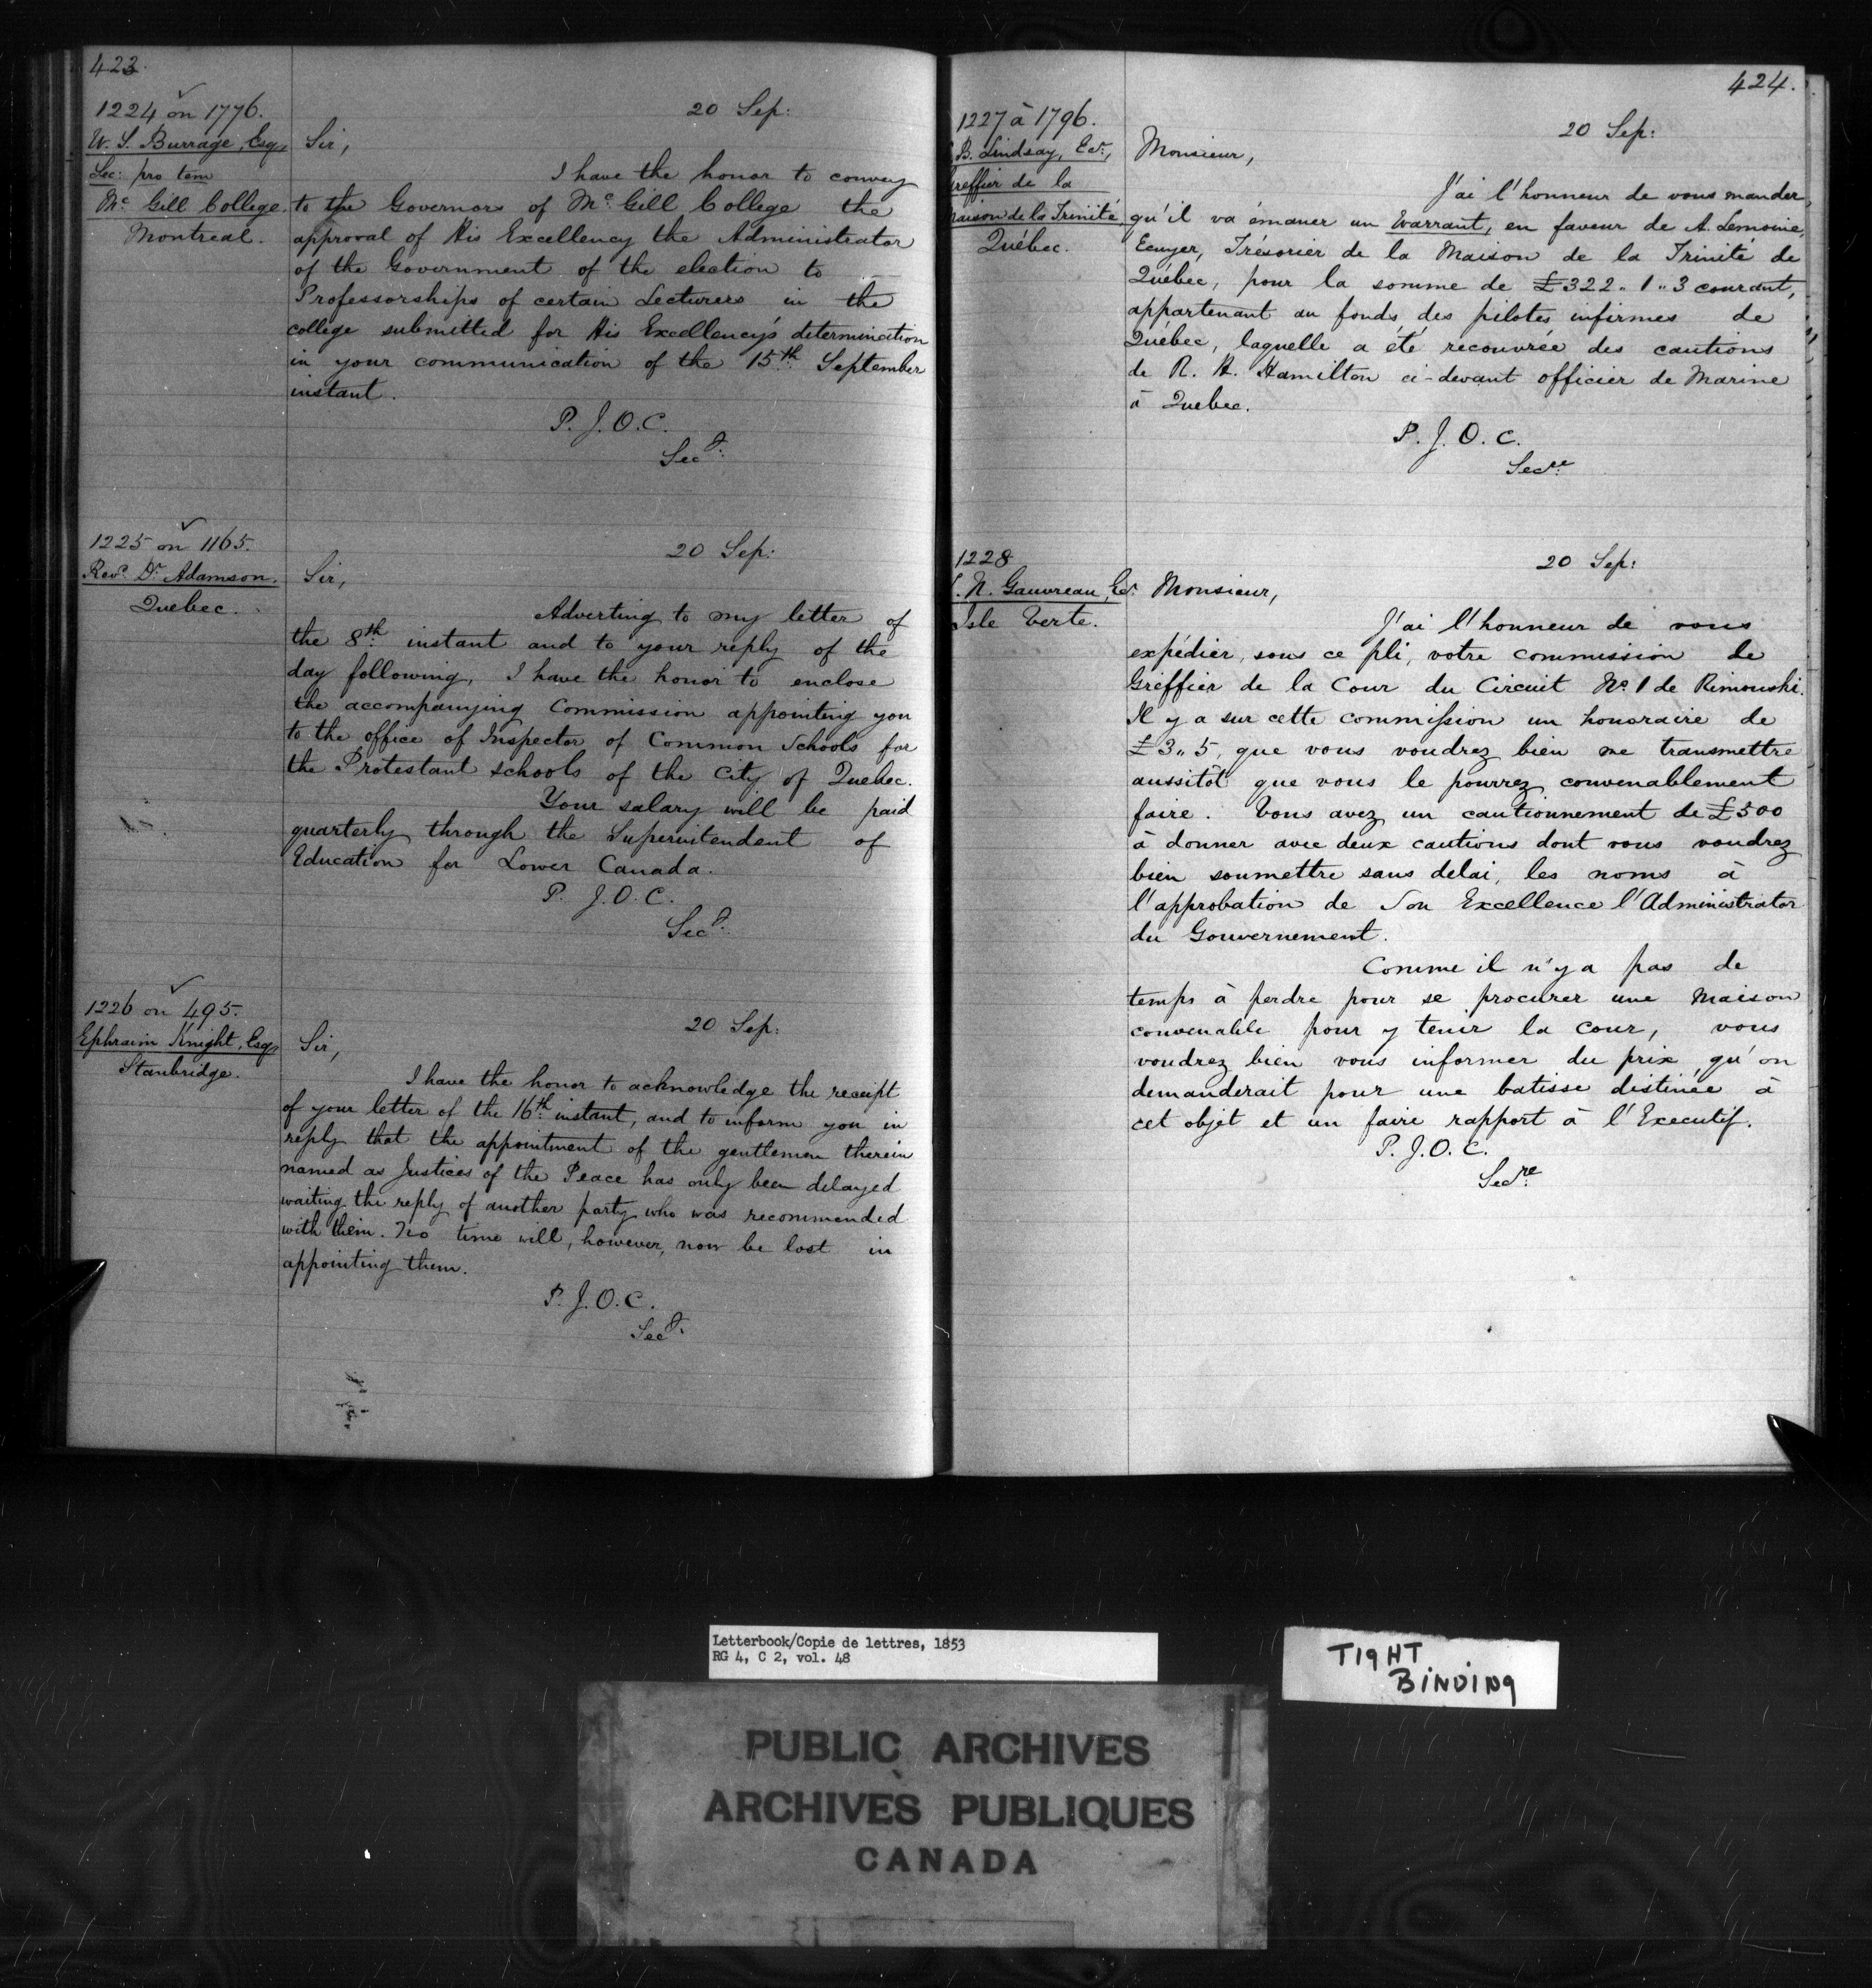 423.
1224 on 1776.
W. S. Burrage, Esq,
Sec: pro tem
Mc Gill College.
Montreal.
20 Sep:
Sir,
I have the honor to convey
to the Governors of Mc Gill College the
approval of His Excellency the Administrator
of the Government of the election to
Professorships of certain Lecturers in the
college submitted for His Excellency's determination
in your communication of the 15th September
instant.
P. J. O. C.
Secy.
1225 on 1165.
Revd. Dr. Adamson.
Quebec.
20 Sep:
Sir,
Adverting to my letter of
the 8th instant and to your reply of the
day following, I have the honor to enclose
the accompanying Commission appointing you
to the office of Inspector of Common Schools for
the Protestant schools of the City of Quebec.
Your salary will be paid
quarterly through the Superintendent of
Education for Lower Canada.
P. J. O. C.
Secy.
1226 on 495.
Ephraim Knight, Esq,
Stanbridge.
20 Sep:
Sir,
I have the honor to acknowledge the receipt
of your letter of the 16th instant, and to inform you in
reply that the appointment of the gentlemen therein
named as Justices of the Peace has only been delayed
waiting the reply of another party who was recommended
with them. No time will, however, now be lost in
appointing them.
P. J. O. C.
Secy.
424.
1227 à 1796.
B. Lindsay, Ecr.,
Greffier de la
Maison de la Trinité
Québec.
20 Sep:
Monsieur,
J'ai l'honneur de vous mander
qu'il va émaner un Warrant, en faveur de A. Lemoine,
Ecuyer, Trésorier de la Maison de la Trinité de
Québec, pour la somme de £322.. 1.. 3 courant,
appartenant au fonds des pilotes infirmes de
Québec, laquelle a été recouvrée des cautions
de R. H. Hamilton ci-devant officier de Marine
à Quebec.
P. J. O. C.
Secre.
1228
. N. Gauvreau, Ecr.
Isle Verte.
20 Sep:
Monsieur,
J'ai l'honneur de vous
expédier, sous ce pli, votre commission de
Greffier de la Cour du Circuit No. 1 de Rimouski.
Il y a sur cette commission un honoraire de
£3..5, que vous voudrez bien me transmettre
aussitôt que vous le pourrez convenablement
faire. Vous avez un cautionnement de £500
à donner avec deux cautions dont vous voudrez
bien soumettre sans delai, les noms à
l'approbation de Son Excellence l'Administrator
du Gouvernement.
Comme il n'y a pas de
temps à perdre pour se procurer une maison
convenable pour y tenir la cour, vous
voudrez bien vous informer du prix qu'on
demanderait pour une batisse distinée à
cet objet et un faire rapport à l'Executif.
P. J. O. C.
Secre.
Letterbook/Copie de lettres, 1853
RG 4, C 2, vol. 48
TIGHT
BINDING
PUBLIC ARCHIVES
ARCHIVES PUBLIQUES
CANADA